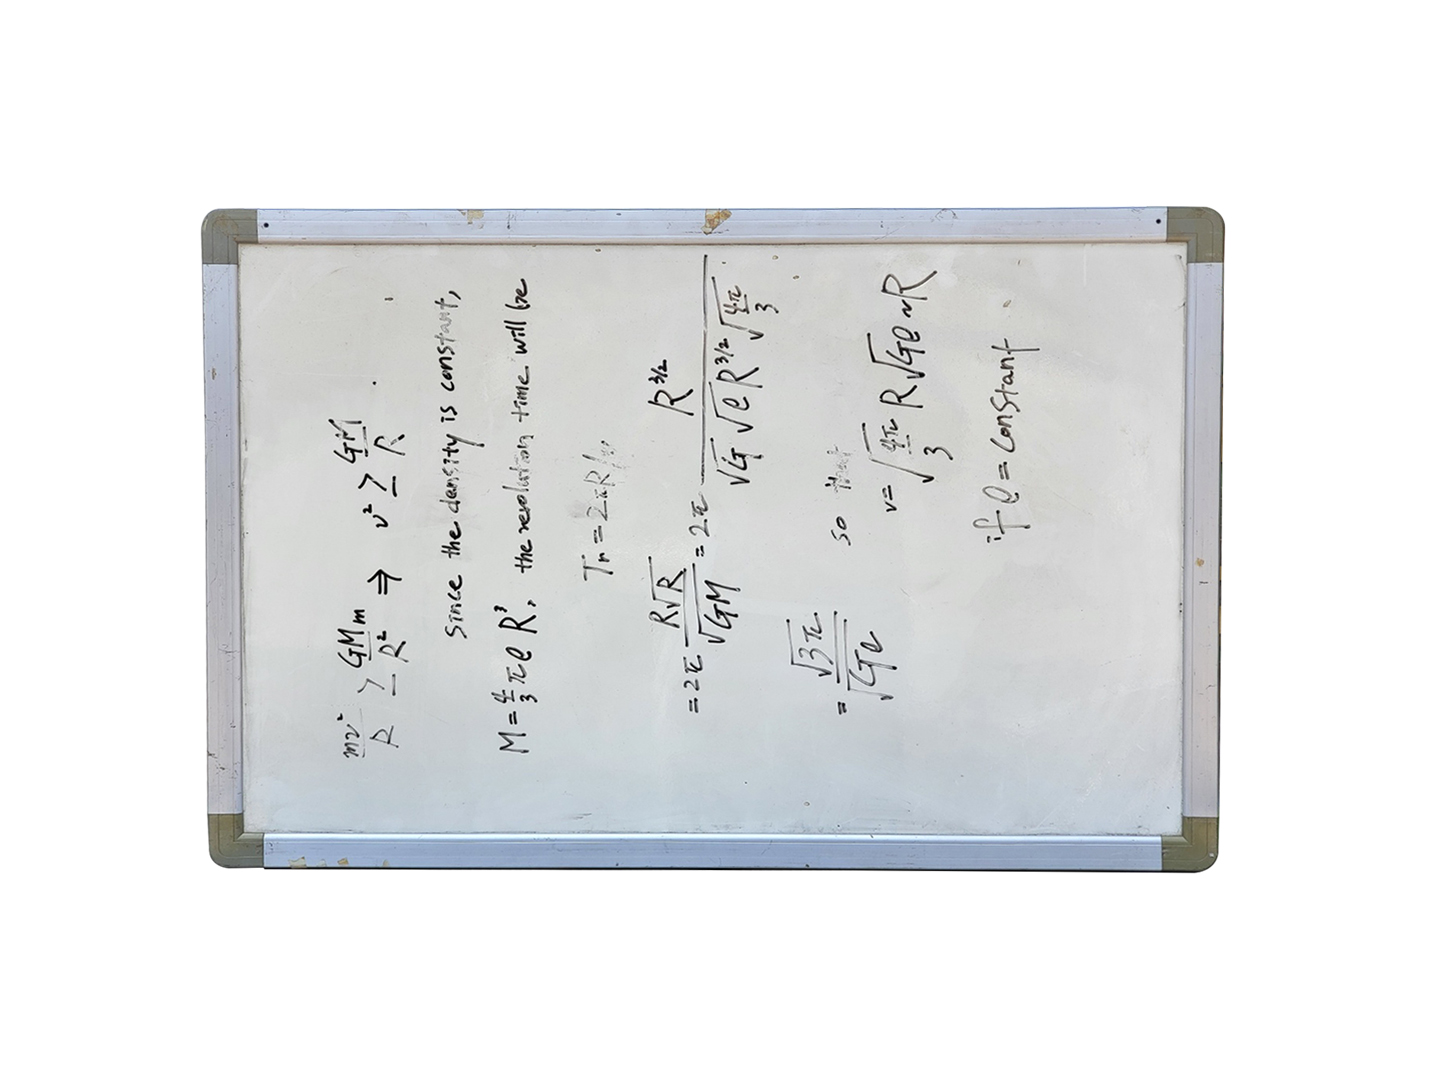 mv²/R ≥ GMm/R² ⇒ v² ≥ GM/R
Since the density is constant,
M = 4/3 πρR³, the revolution time will be
Tr = 2πR/v
= 2π R√R/√GM = 2π R^3/2/(√G √ρ R^3/2 √4π/3)
= √3π/√Gρ so that
v = √4π/3 R√Gρ ~ R
if ρ = constant.